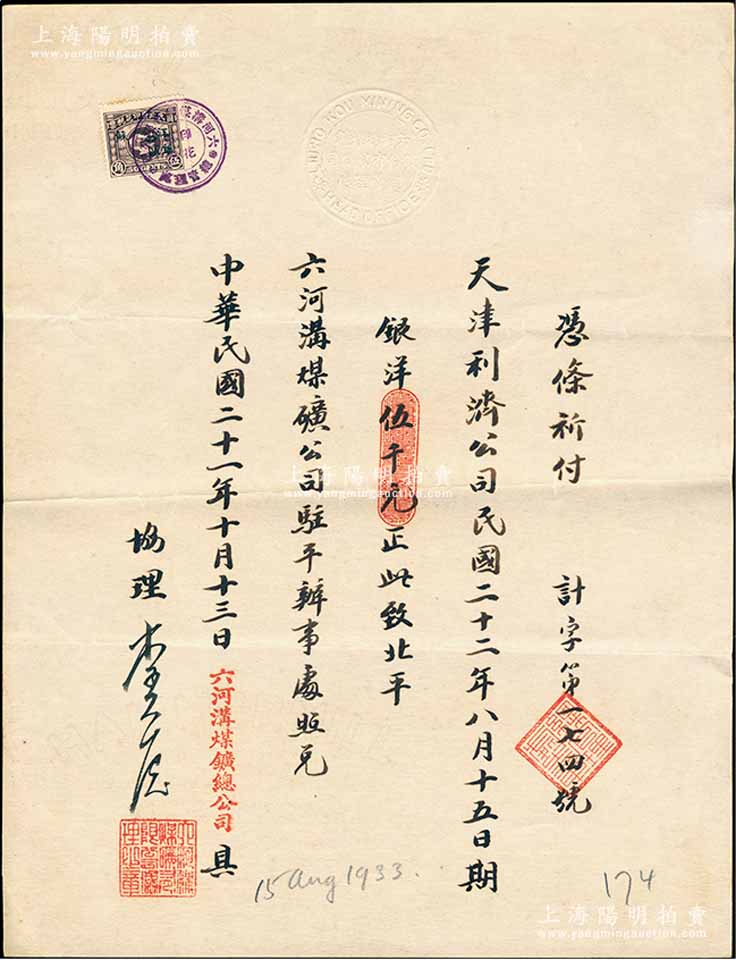 憑條祈付 計字第一七四號
天津利濟公司民國二十二年八月十五日期
銀洋伍千元正此致北平
六河溝煤礦公司駐平辦事處照兌
中華民國二十一年十月十三日 六河溝煤鑛總公司 具
協理
15 Aug 1933.
174
HEAD OFFICE
印花
上海陽明拍賣
www.yangmingauction.com
上海陽明拍賣
www.yangmingauction.com
上海陽明拍賣
www.yangmingauction.com